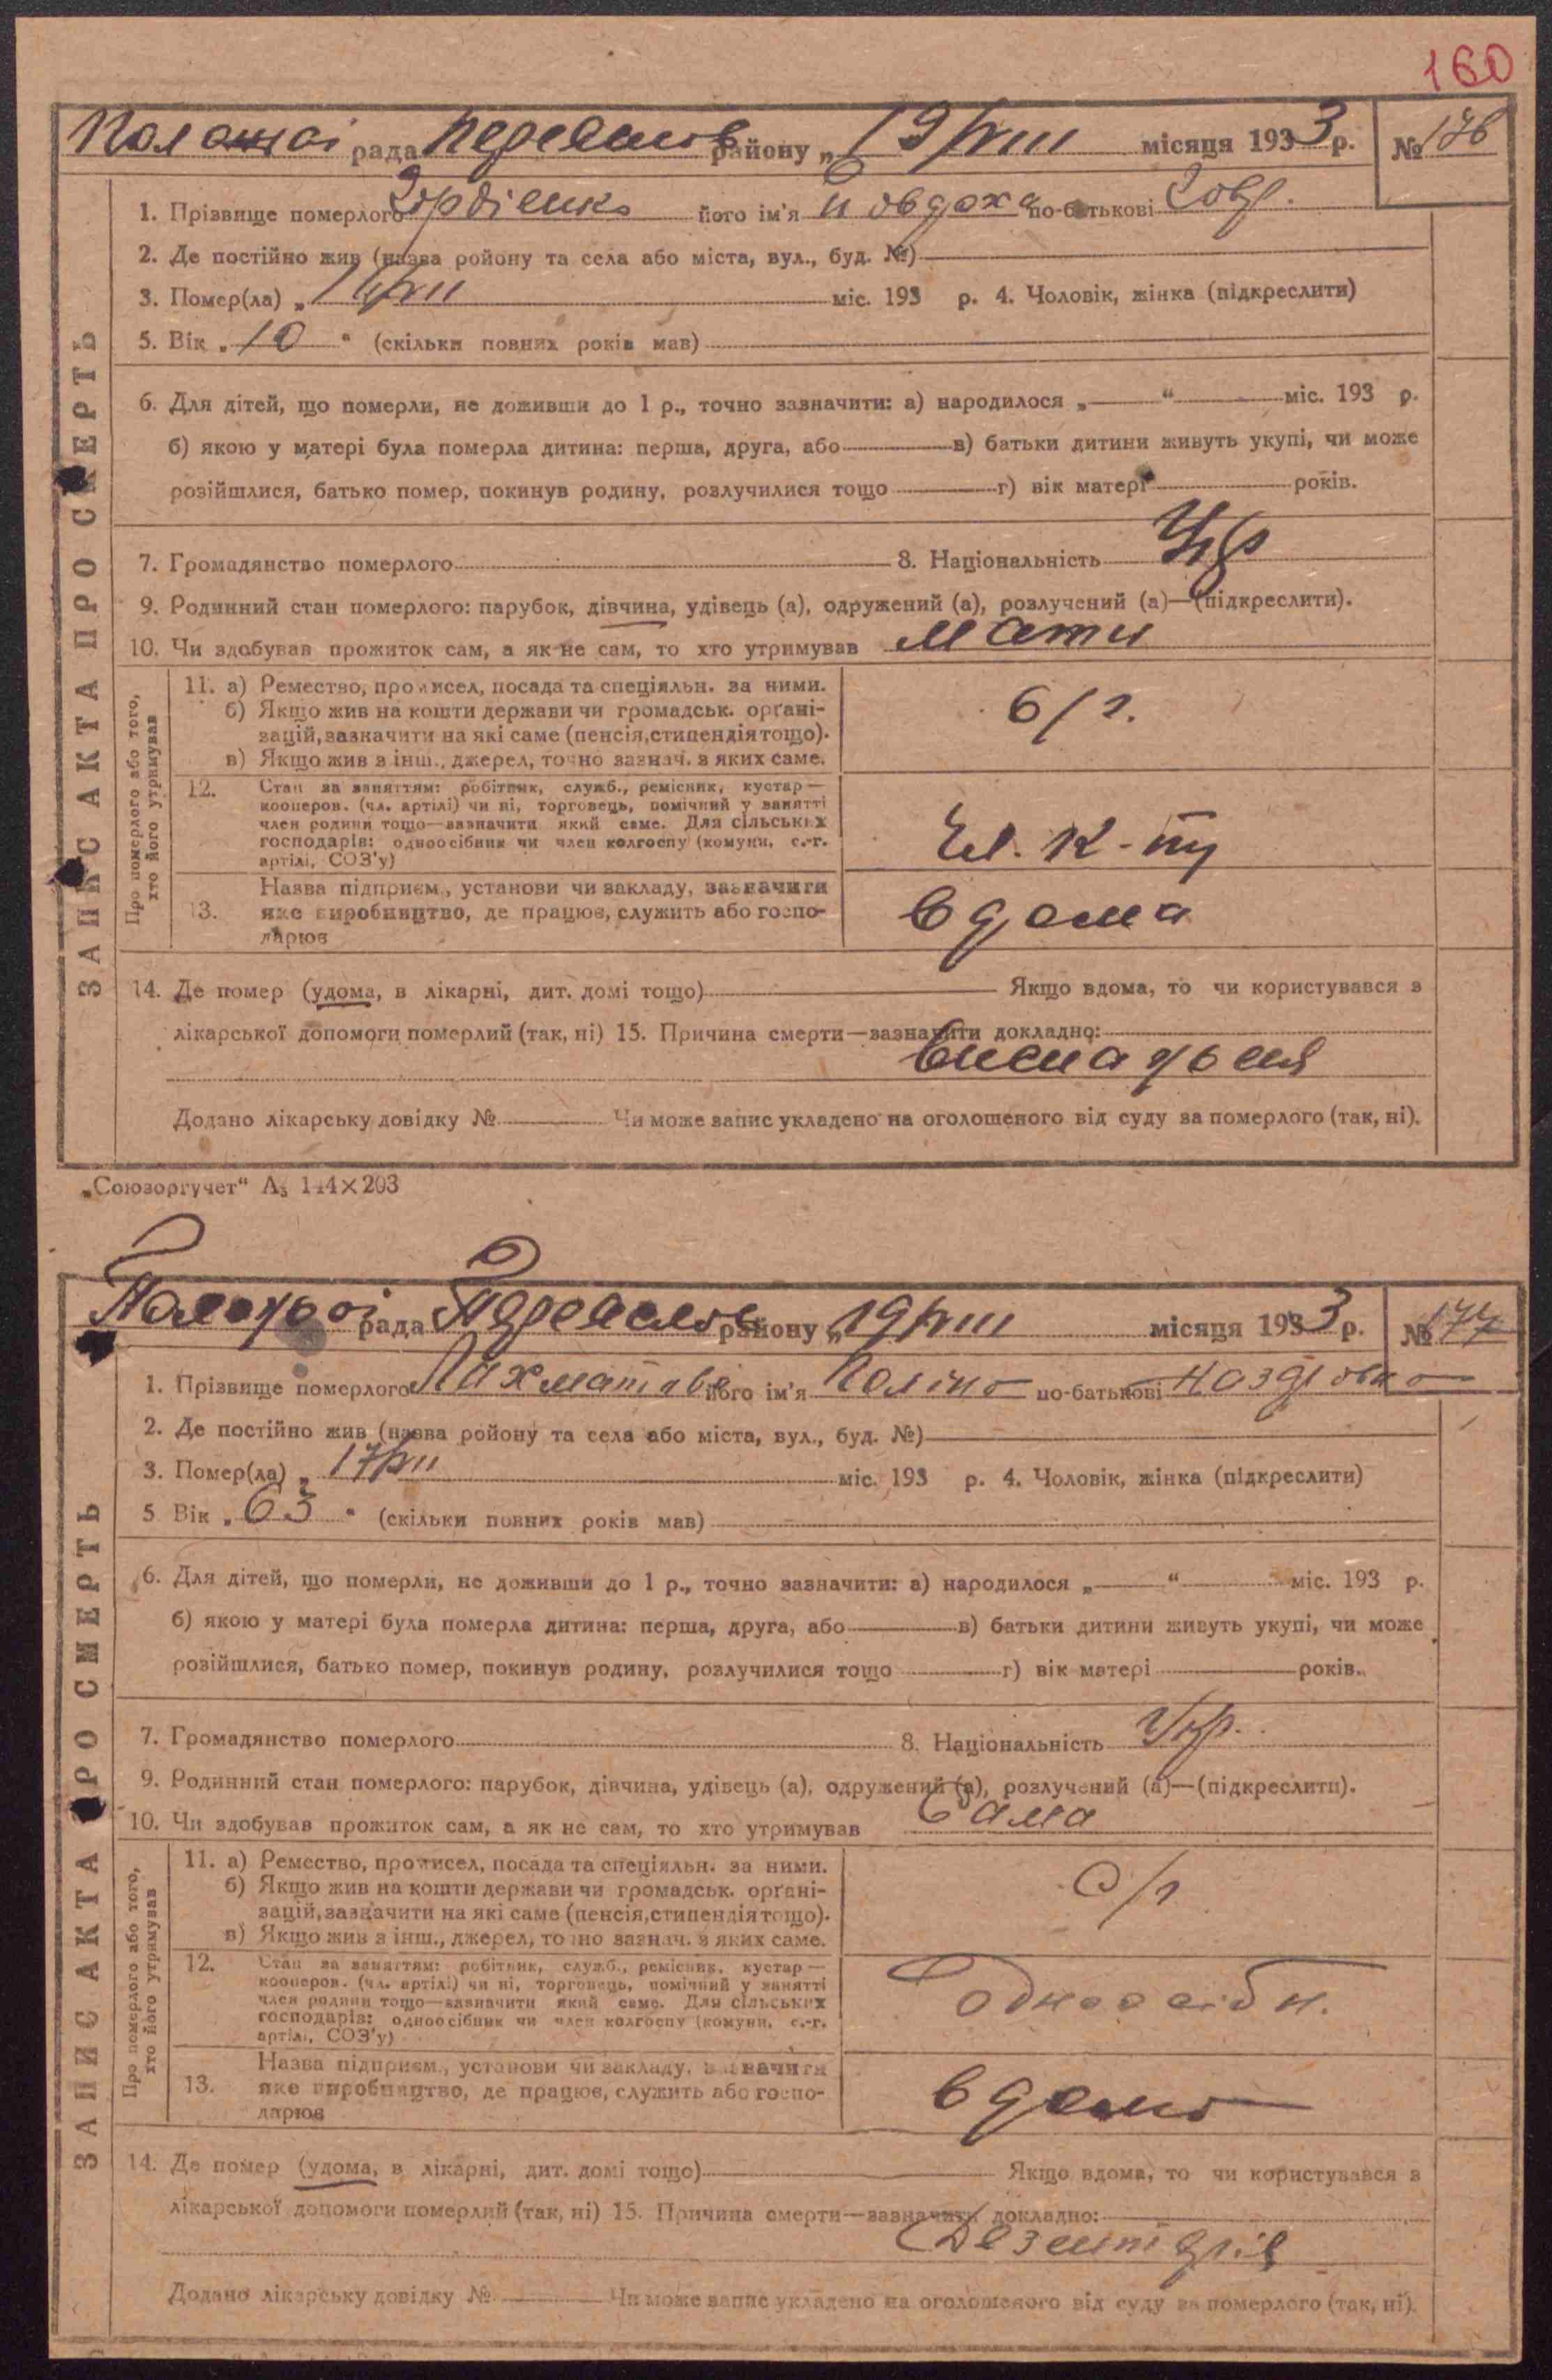 160
рада району „19/VIII місяця 1933 р. № 176
ЗАПИС АКТА ПРО СМЕРТЬ
1. Прізвище померлого Гордіенко його ім'я Йовдоха по-батькові
2. Де постійно жив (назва ройону та села або міста, вул., буд. №)
3. Помер(ла) „ міс. 193 р. 4. Чоловік, жінка (підкреслити)
5. Вік „10“ (скільки повних років мав)
6. Для дітей, що померли, не доживши до 1 р., точно зазначити: а) народилося „ “ міс. 193 р.
б) якою у матері була померла дитина: перша, друга, або в) батьки дитини живуть укупі, чи може
розійшлися, батько помер, покинув родину, розлучилися тощо г) вік матері років.
7. Громадянство померлого 8. Національність Укр
9. Родинний стан померлого: парубок, дівчина, удівець (а), одружений (а), розлучений (а)—(підкреслити).
10. Чи здобував прожиток сам, а як не сам, то хто утримував мати
Про померлого або того, хто його утримував
11. а) Ремество, промисел, посада та спеціяльн. за ними.
б) Якщо жив на кошти держави чи громадськ. орґані-
зацій, зазначити на які саме (пенсія, стипендія тощо).
в) Якщо жив з інш., джерел, точно зазнач. з яких саме.
12. Стан за заняттям: робітник, служб., ремісник, кустар—
кооперов. (чл. артілі) чи ні, торговець, помічний у занятті
член родини тощо—зазначити який саме. Для сільських
господарів: одноосібник чи член колгоспу (комуни, с.-г.
артілі, СОЗ'у)
Чл. к-пу
13. Назва підприєм., установи чи закладу, зазначити
яке виробництво, де працює, служить або госпо-
дарює
вдома
14. Де помер (удома, в лікарні, дит. домі тощо) Якщо вдома, то чи користувався з
лікарської допомоги померлий (так, ні) 15. Причина смерти—зазначити докладно:
Додано лікарську довідку № Чи може запис укладено на оголошеного від суду за померлого (так, ні).
„Союзоргучет“ А₅ 144×203
рада району „19/VIII місяця 1933 р. № 177
ЗАПИС АКТА ПРО СМЕРТЬ
1. Прізвище померлого його ім'я по-батькові
2. Де постійно жив (назва ройону та села або міста, вул., буд. №)
3. Помер(ла) „ міс. 193 р. 4. Чоловік, жінка (підкреслити)
5 Вік „63“ (скільки повних років мав)
6. Для дітей, що померли, не доживши до 1 р., точно зазначити: а) народилося „ “ міс. 193 р.
б) якою у матері була померла дитина: перша, друга, або в) батьки дитини живуть укупі, чи може
розійшлися, батько помер, покинув родину, розлучилися тощо г) вік матері років.
7. Громадянство померлого 8. Національність Укр.
9. Родинний стан померлого: парубок, дівчина, удівець (а), одружений (а), розлучений (а)—(підкреслити).
10. Чи здобував прожиток сам, а як не сам, то хто утримував Сама
Про померлого або того, хто його утримував
11. а) Ремество, промисел, посада та спеціяльн. за ними.
б) Якщо жив на кошти держави чи громадськ. орґані-
зацій, зазначити на які саме (пенсія, стипендія тощо).
в) Якщо жив з інш., джерел, точно зазнач. з яких саме.
12. Стан за заняттям: робітник, служб., ремісник, кустар—
кооперов. (чл. артілі) чи ні, торговець, помічний у занятті
член родини тощо—зазначити який саме. Для сільських
господарів: одноосібник чи член колгоспу (комуни, с.-г.
артілі, СОЗ'у)
одноосібн.
13. Назва підприєм., установи чи закладу, зазначити
яке виробництво, де працює, служить або госпо-
дарює
вдома
14. Де помер (удома, в лікарні, дит. домі тощо) Якщо вдома, то чи користувався з
лікарської допомоги померлий (так, ні) 15. Причина смерти—зазначити докладно:
Дезинтерія
Додано лікарську довідку № Чи може запис укладено на оголошеного від суду за померлого (так, ні).